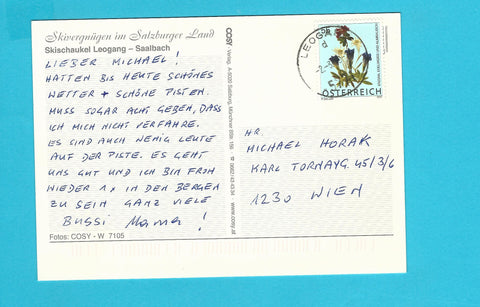 Skivergnügen im Salzburger Land
Skischaukel Leogang – Saalbach
LIEBER MICHAEL!
HATTEN BIS HEUTE SCHÖNES
WETTER + SCHÖNE PISTEN.
MUSS SOGAR ACHT GEBEN, DASS
ICH MICH NICHT VERFAHRE.
ES SIND AUCH WENIG LEUTE
AUF DER PISTE. ES GEHT
UNS GUT UND ICH BIN FROH
WIEDER 1x IN DEN BERGEN
ZU SEIN GANZ VIELE
BUSSI Mama!
Fotos: COSY - W 7105
COSY Verlag, A-5020 Salzburg, Münchner BStr. 159
www.cosy.at
LEOGANG
ÖSTERREICH
HR.
MICHAEL HORAK
KARL TORNAYG. 45/3/6
1230 WIEN